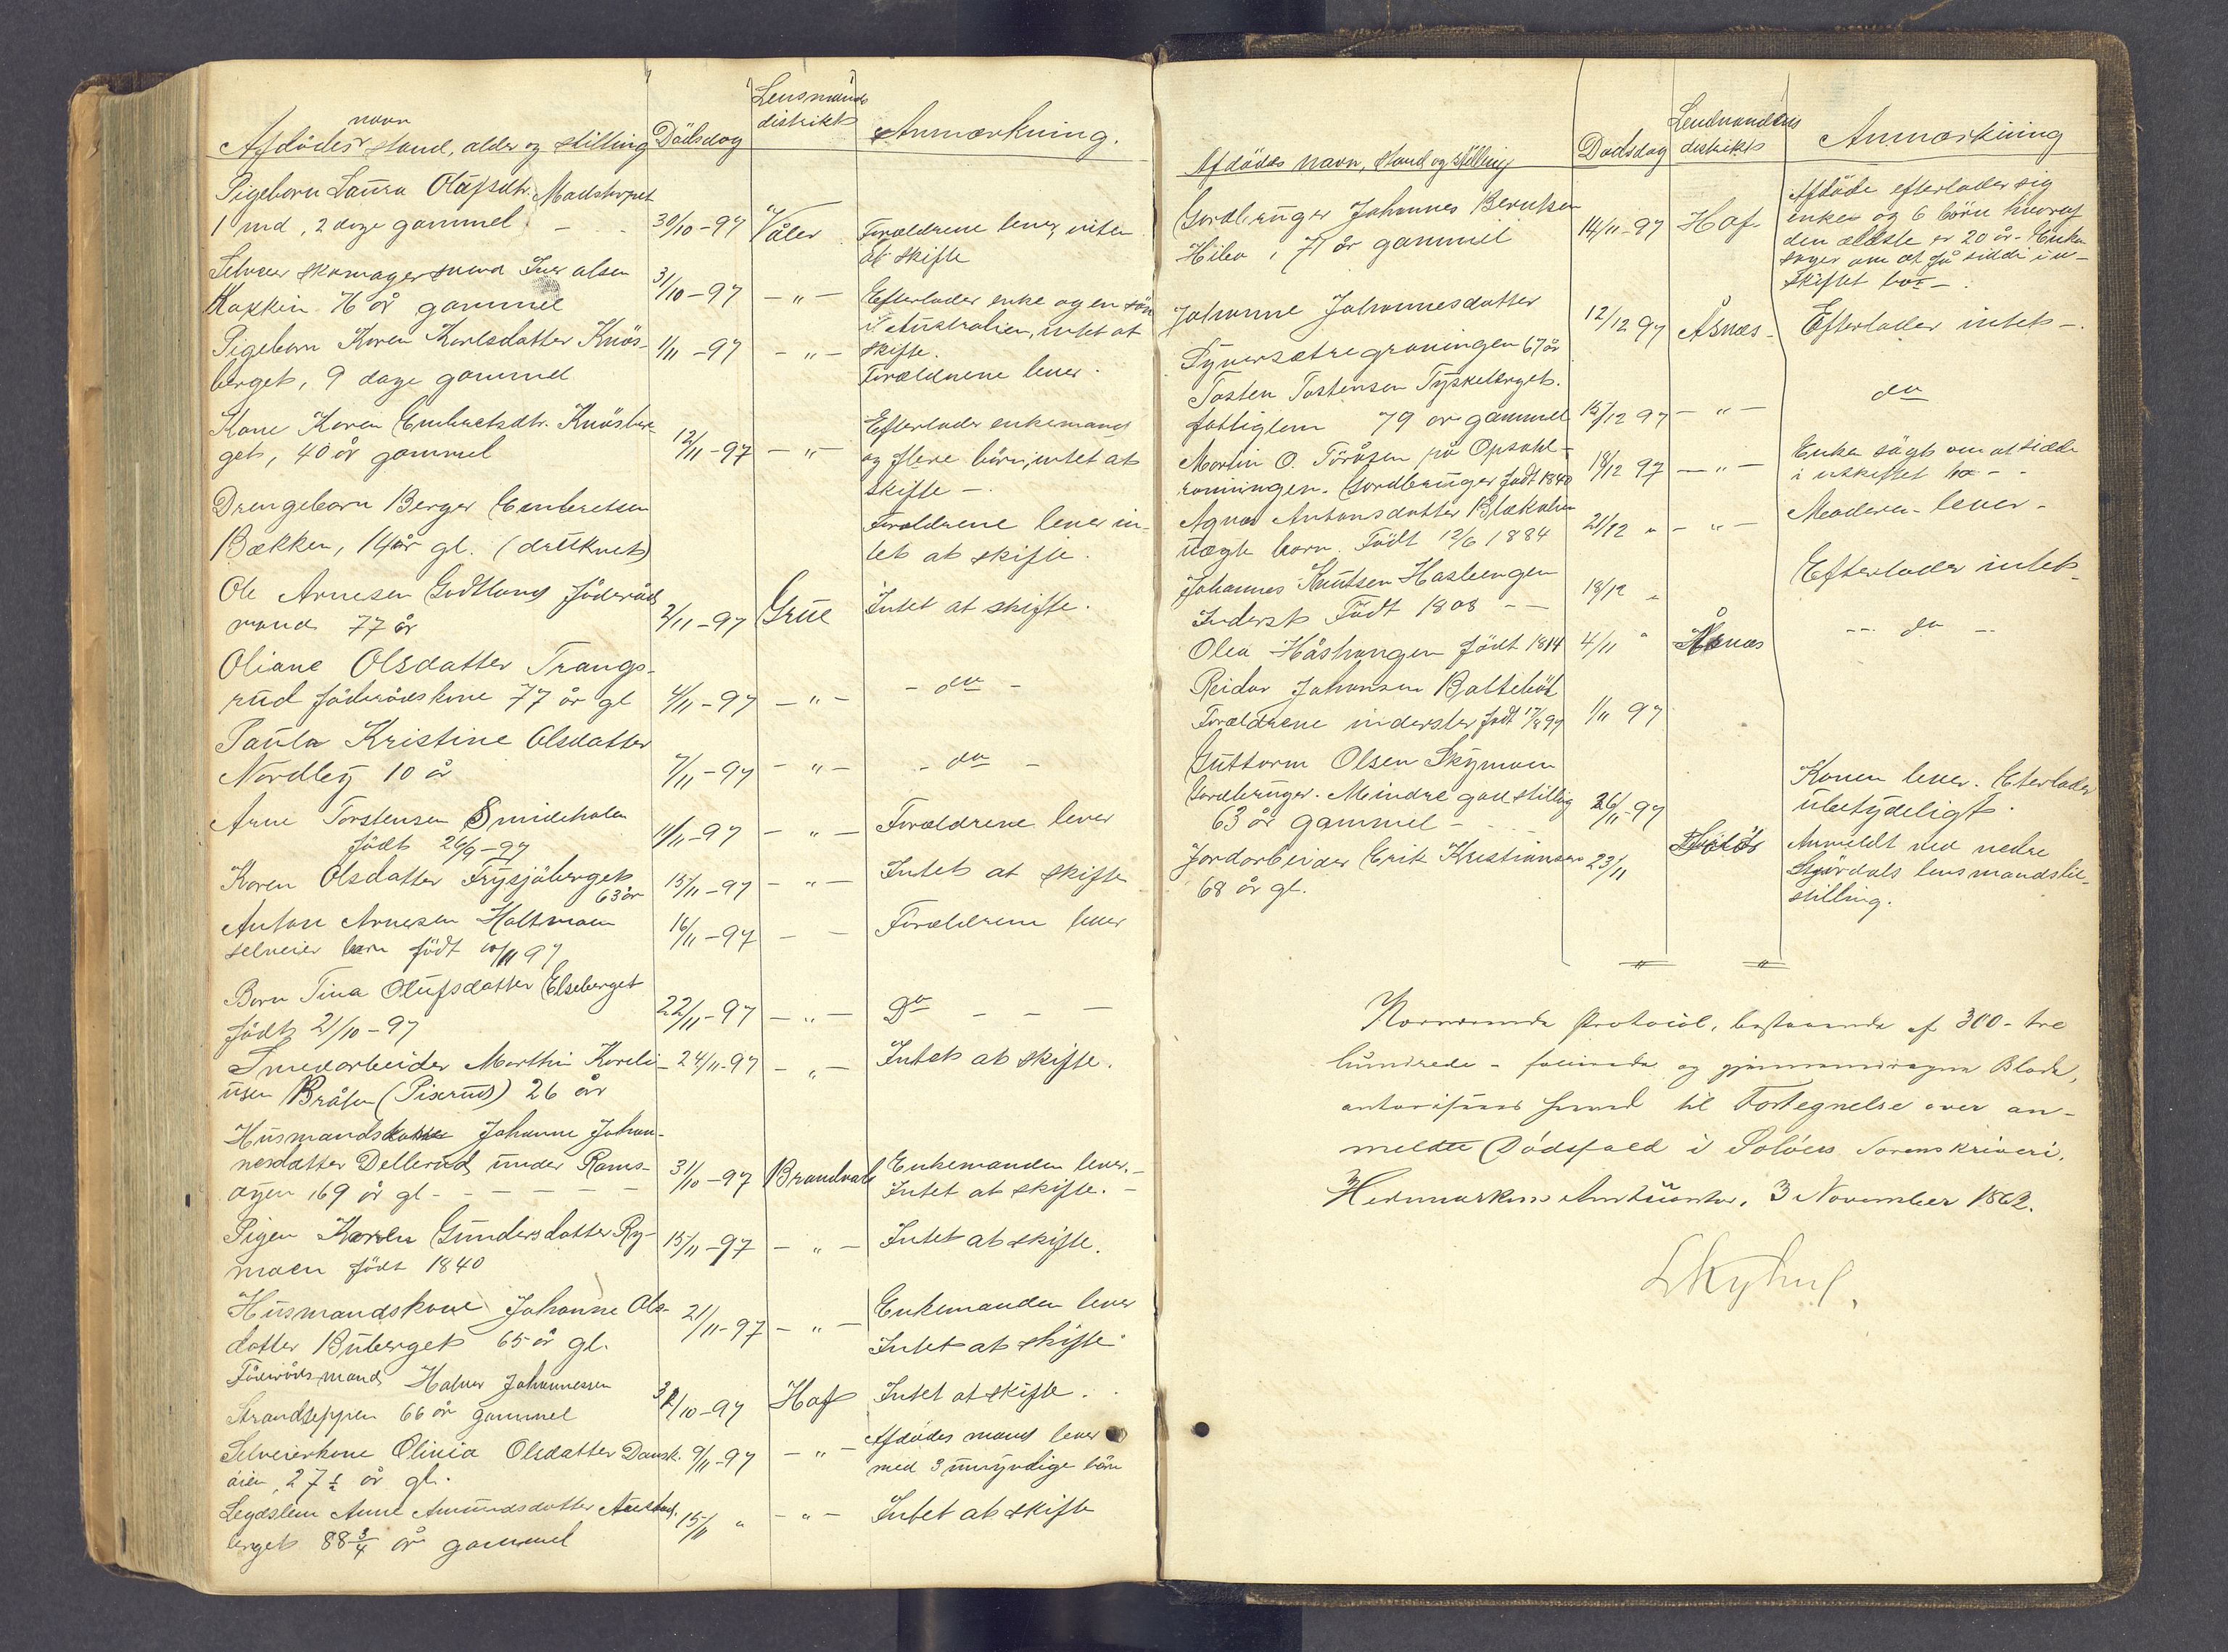 Afdødes navn stand, alder og stilling Dødsdag Lensmands distrikt Anmærkning.
Pigebarn Laura Olafsdtr. Madstorpet
1 md, 2 dage gammel. 30/10-97 Våler Forældrene lever, intet
at skifte
Selveier skomagersvend Iver Olsen
76 år gammel 31/10-97 - " - Efterlader enke og en søn
i Australien, intet at
skifte.
Pigebarn Karen Karlsdatter Knøs-
berget, 9 dage gammel 1/11-97 - " - Forældrene lever.
Kone Karen Embretsdtr. Knøsber-
get, 40 år gammel 12/11-97 - " - Efterlader enkemand
og flere børn, intet at
skifte -
Drengebarn Berger Embretsen
Bækken, 14 år gl. (druknet) Forældrene lever in-
tet at skifte.
Ole Arnesen Godtland føderåds
mand 77 år 2/11-97 Grue Intet at skifte.
Oliane Olsdatter Trangs-
rud føderådskone 77 år gl 4/11-97 - " - - do -
Paula Kristine Olsdatter
Nordby 10 år 7/11-97 - " - - do -
Arne Torstensen Smideholen
født 26/9-97 11/11-97 - " - Forældrene lever
Karen Olsdatter Frysjøberget
63 år 15/11-97 - " - Intet at skifte
Anton Arnesen Holtmoen
selveier barn født 10/11 97 16/11-97 - - Forældrene lever
Barn Tina Olufsdatter Elseberget
født 21/10-97 22/11-97 - " - Do - - -
Snedarbeider Marthin Korneli- 24/11-97 - " - Intet at skifte.
usen Bråten (Pixrud) 26 år
Husmandskone Johanne Johan-
nesdatter Dellerud under Rams-
øyen, 69 år gl - - - - 31/10-97 Brandval Enkemanden lever. -
Intet at skifte. -
Pigen Karen Gundersdatter Ry-
moen født 1840 15/11-97 - " - Intet at skifte.
Husmandskone Johanne Ols-
datter Buberget 65 år gl. 21/11-97 - " - Enkemanden lever
Intet at skifte
Føderådsmand Halvor Johannessen
Strandseppen 66 år gammel 31/10-97 Hof Intet at skifte.
Selveierkone Olivia Olsdatter Dansk. 9/11-97 - " - Afdødes mand lever
øien, 27 1/2 år gl. med 3 umyndige børn
Legdslem Anne Amundsdatter 15/11 " - " - Intet at skifte
berget 88 3/4 år gammel
Afdødes navn, stand og stilling Dødsdag Lensmandens distrikt Anmærkning
Gardbruger Johannes Berntsen
Hilen, 71 år gammel 14/11-97 Hof Afdøde efterlader sig
enke og 6 børn hvoraf
den ældste er 20 år. Enken
søger om at få sidde i u-
skiftet bo -.
Johanne Johannesdatter
Tyversætregraningen 67 år 12/12 97 Åsnæs - Efterlader intet -.
Tosten Tostensen Tyskeberget.
fattiglem 79 år gammel 15/12 97 - " - do
Martin O. Toråsen på Opsahl-
ronningen. Gardbruger født 1840 18/12 97 - " - Enken søgt om at sidde
i uskiftet bo -
Agnes Antonsdatter
uægte barn. Født 12/6 1884 21/12 " - " - Moderen lever -
Johannes Knutsen Hasbengen
Inderst Født 1808 - - 18/12 " Efterlader intet
Olea Håshangen født 1814 4/11 " Åsnæs - do -
Reidar Johansen Baltebøl
Forældrene inderster født 17/8 97 1/11 97
Guttorm Olsen Skymoen
Gardbruger. Meindre god stilling
63 år gammel - 26/11-97 Konen lever. Eterlader
ubetydeligt.
Jordarbeider Erik Kristiansen 23/11 Anmeldt ved nedre
68 år gl. Stjørdals lensmandsbe-
stilling.
Nærværende Protocol, bestaaende af 300 - tre
hundrede - folierede og gjennemdragne Blade,
autoriseres herved til Fortegnelse over an-
meldte Dødsfald i Soløers Sorenskriveri.
Hedemarkens Amtscontor, 3 November 1862.